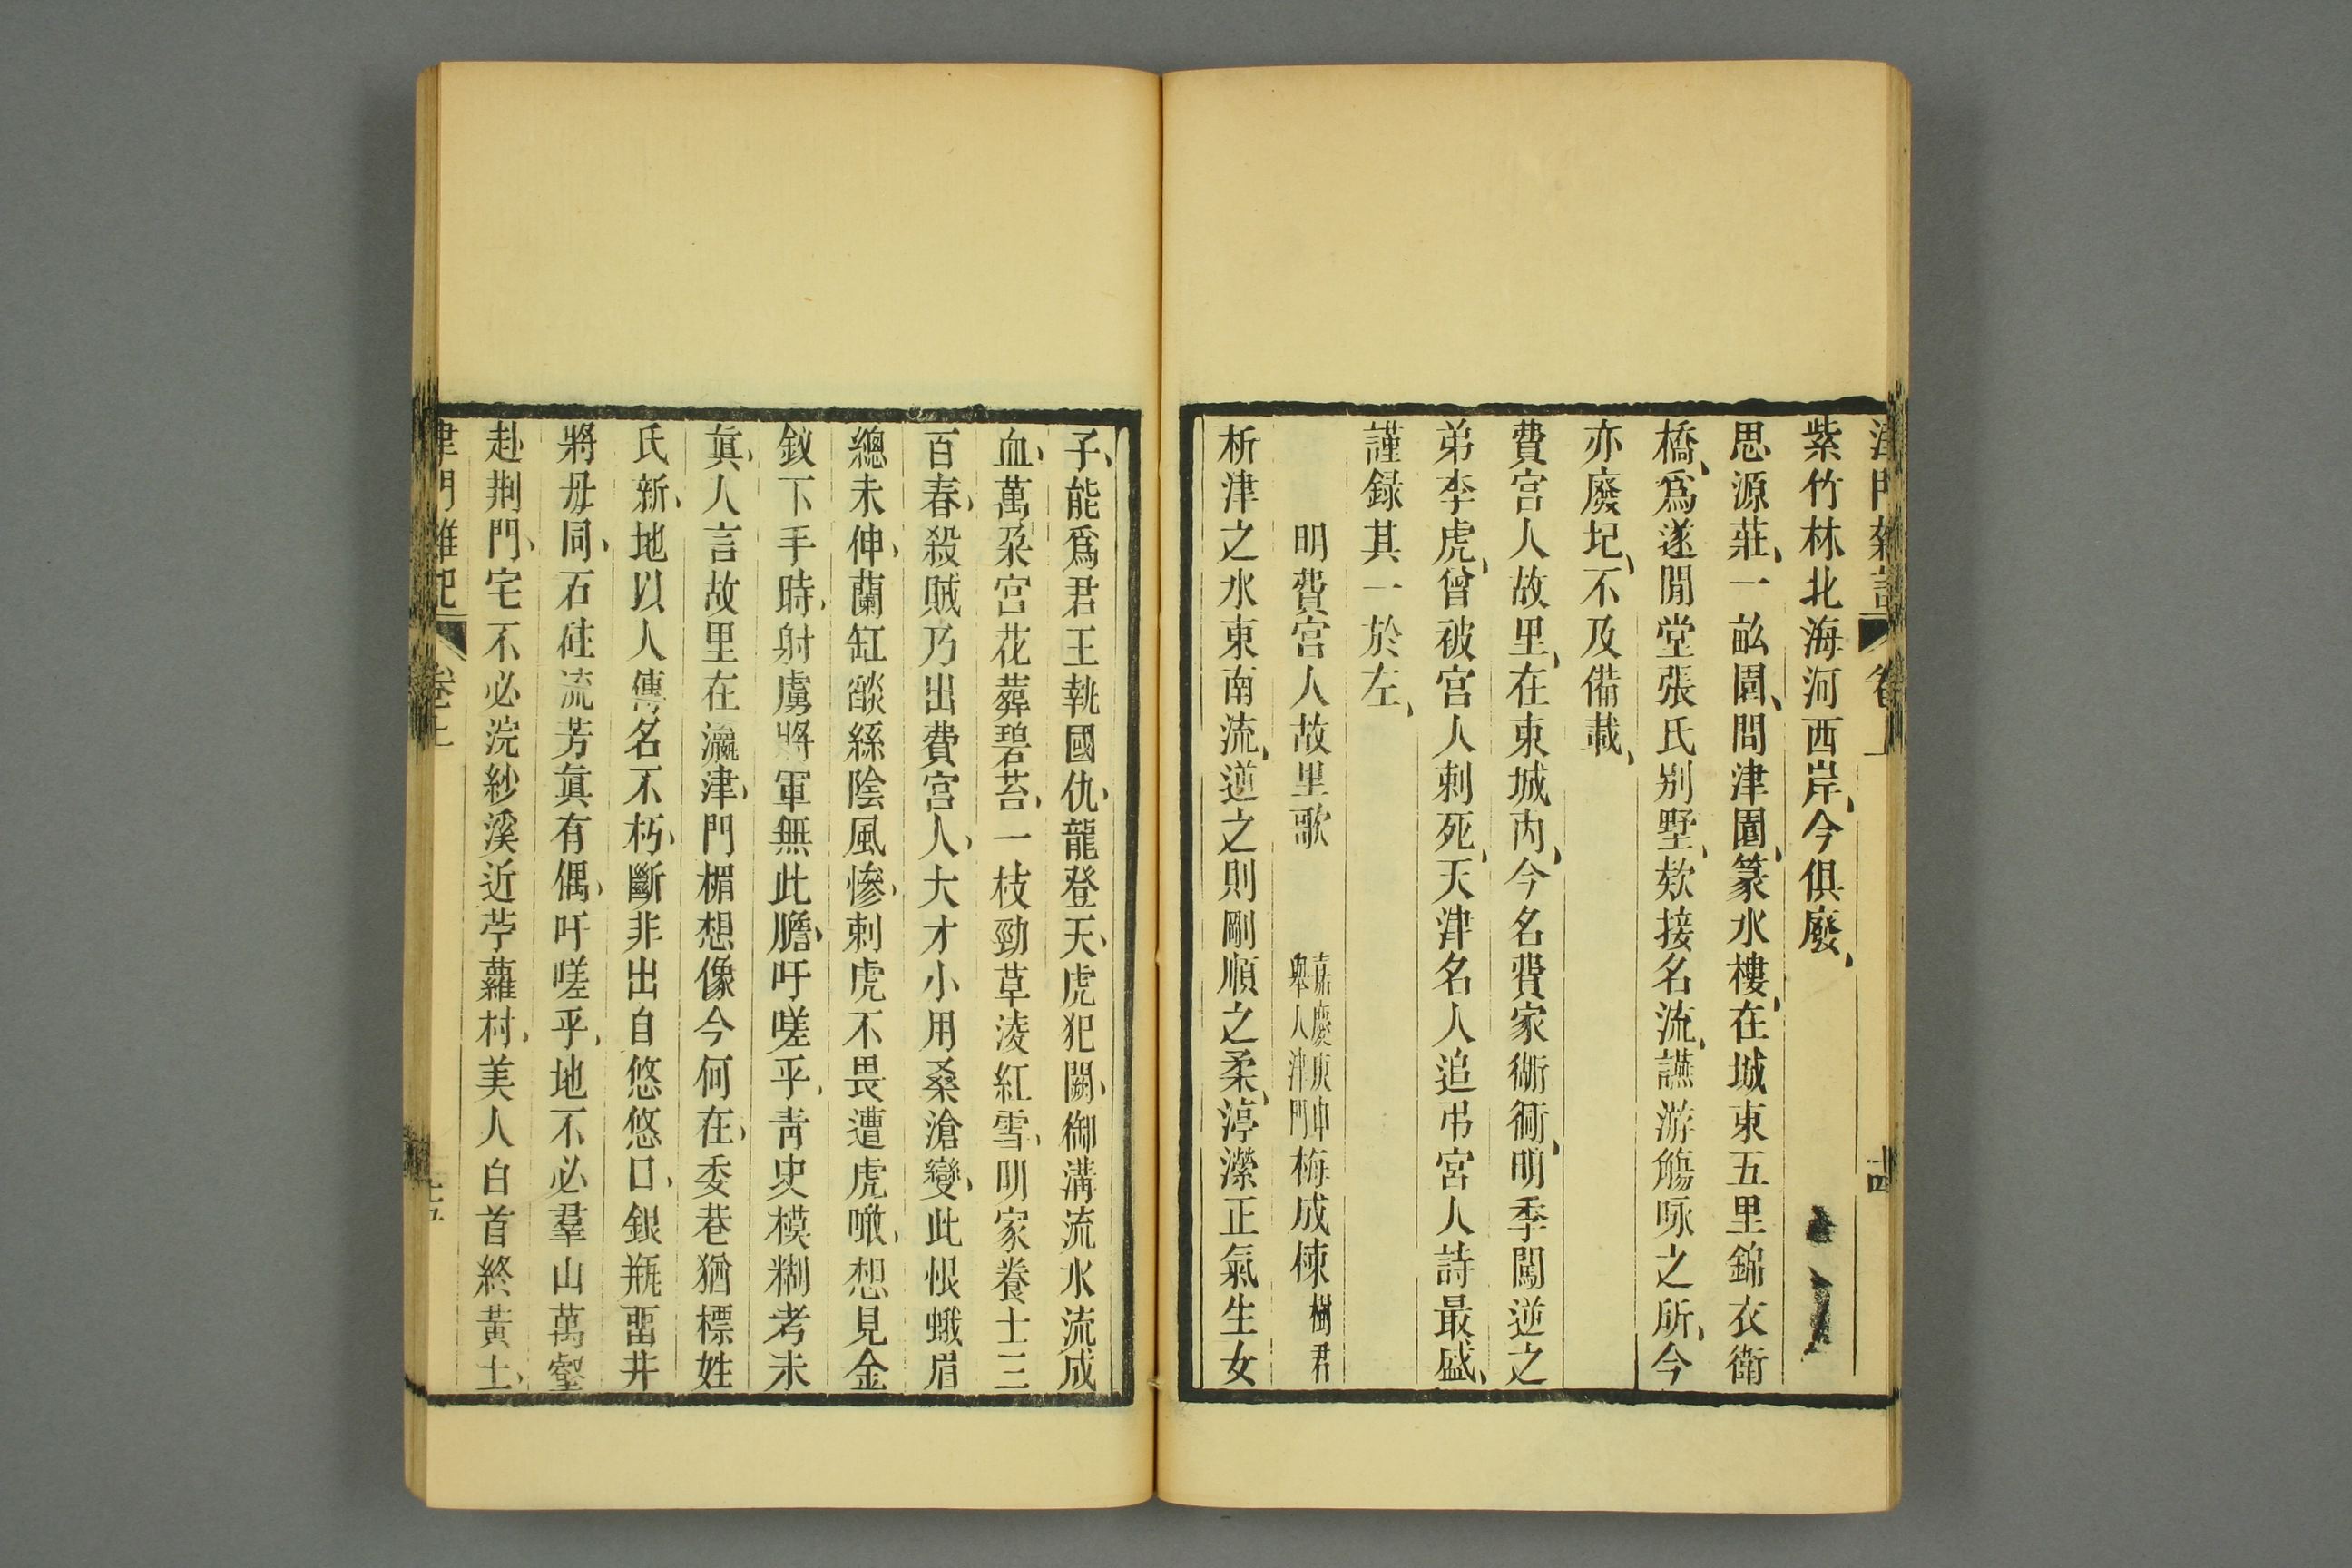 津門雜記 卷上 十四
紫竹林北海河西岸、今俱廢、
思源莊、一畝園、問津園、篆水樓、在城東五里錦衣衛
橋、爲遂閒堂張氏别墅、欵接名流、讌游觴咏之所、今
亦廢圮、不及備載、
費宮人故里、在東城内、今名費家衚衕、明季闖逆之
弟李虎、曾被宮人刺死、天津名人追弔宮人詩最盛、
謹録其一於左、
明費宮人故里歌 嘉慶庚申舉人津門 梅成棟 樹君
析津之水東南流、逆之則剛順之柔、渟瀠正氣生女
子、能爲君王執國仇、龍登天、虎犯闕、御溝流水流成
血、萬朶宮花葬碧苔、一枝勁草淩紅雪、明家養士三
百春、殺賊乃出費宮人、大才小用桑滄變、此恨蛾眉
總未伸、蘭缸燄綠陰風慘、刺虎不畏遭虎噉、想見金
釵下手時、射虜將軍無此膽、吁嗟乎、靑史模糊考未
眞、人言故里在瀛津、門楣想像今何在、委巷猶標姓
氏新、地以人傳名不朽、斷非出自悠悠口、銀瓶畱井
將毋同、石硅流芳眞有偶、吁嗟乎、地不必羣山萬壑
赴荆門、宅不必浣紗溪近苧蘿村、美人白首終黃土、
津門雜記 卷上 十五